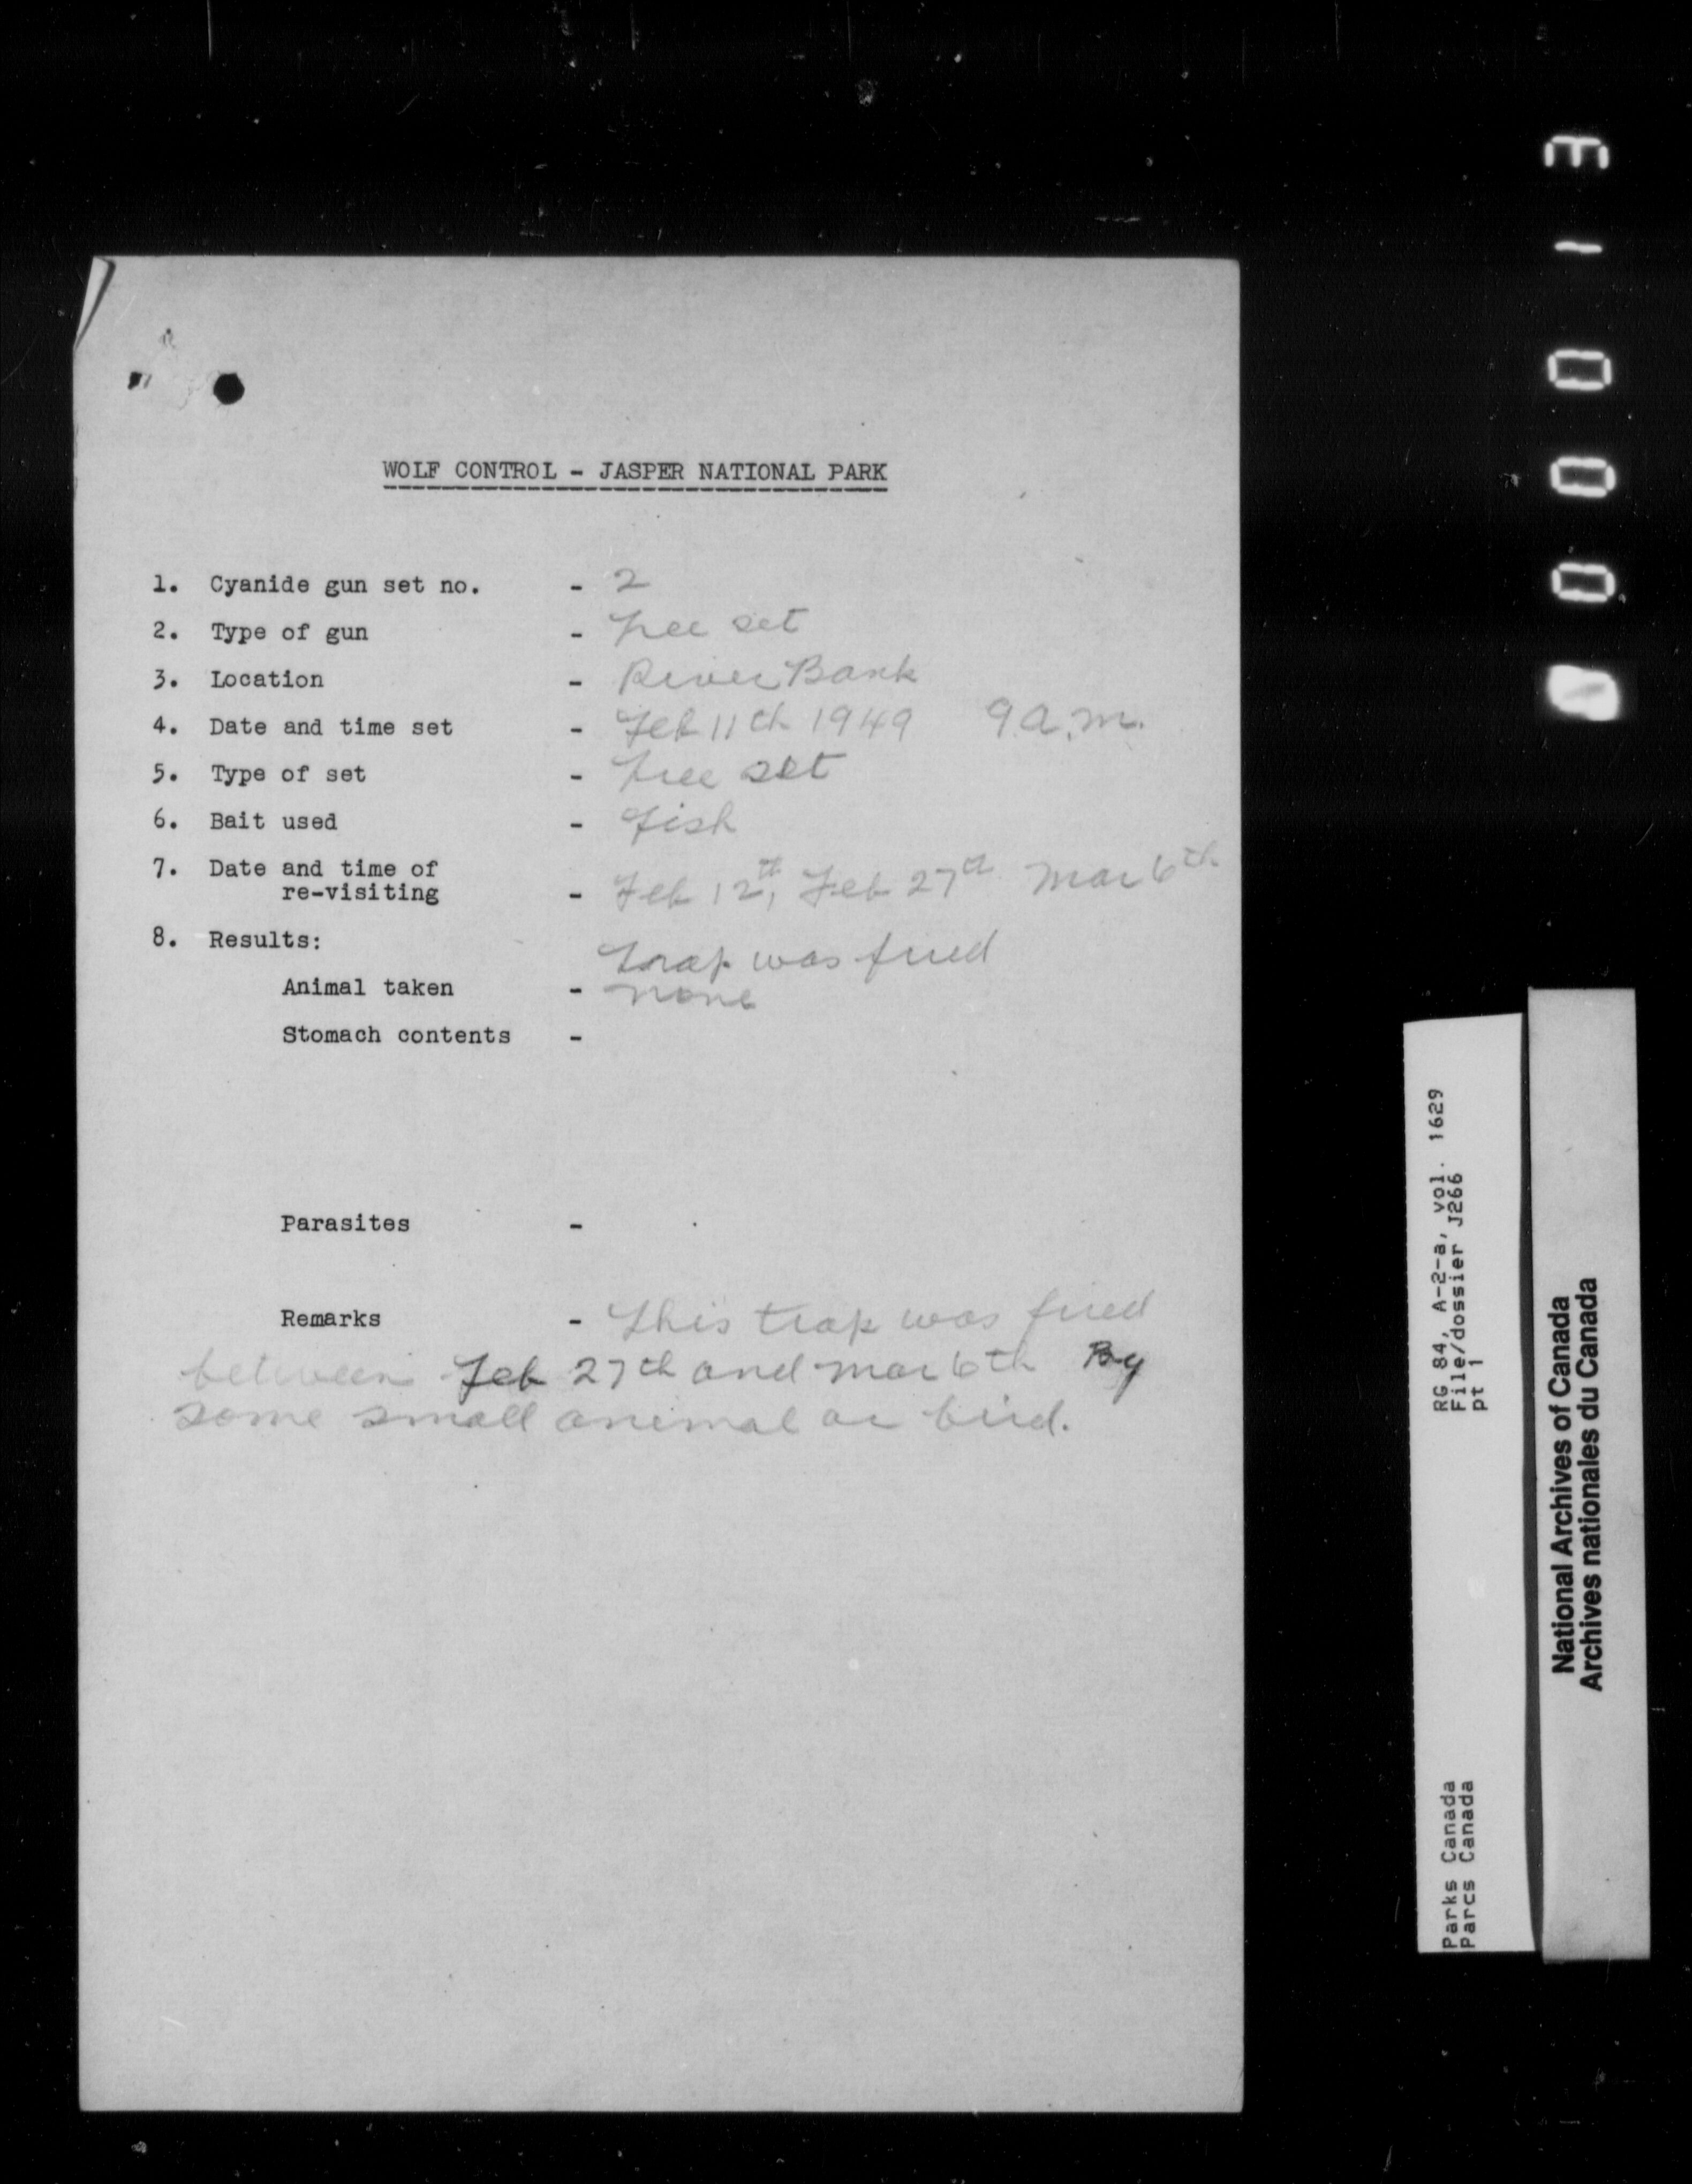 WOLF CONTROL - JASPER NATIONAL PARK
1. Cyanide gun set no. - 2
2. Type of gun - Tree set
3. Location - River Bank
4. Date and time set - Feb 11th 1949 9 a.m.
5. Type of set - Tree set
6. Bait used - Fish
7. Date and time of
re-visiting - Feb 12th, Feb 27th Mar 6th
8. Results:
Trap was fired
Animal taken - none
Stomach contents -
Parasites -
Remarks - This trap was fired
between Feb 27th and Mar 6th By
some small animal or bird.
00013
RG 84, A-2-a, vol. 1629
File/dossier J266
pt 1
Parks Canada
Parcs Canada
National Archives of Canada
Archives nationales du Canada